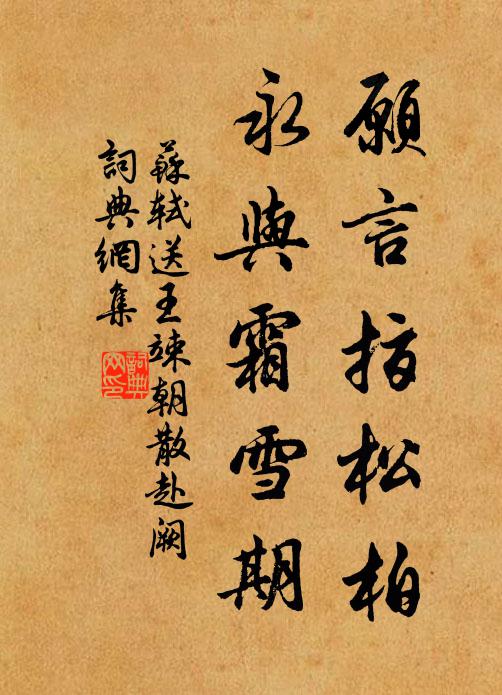 願言指松柏
永與霜雪期
蘇軾送王竦朝散赴阙
詞典網集
詞典網印